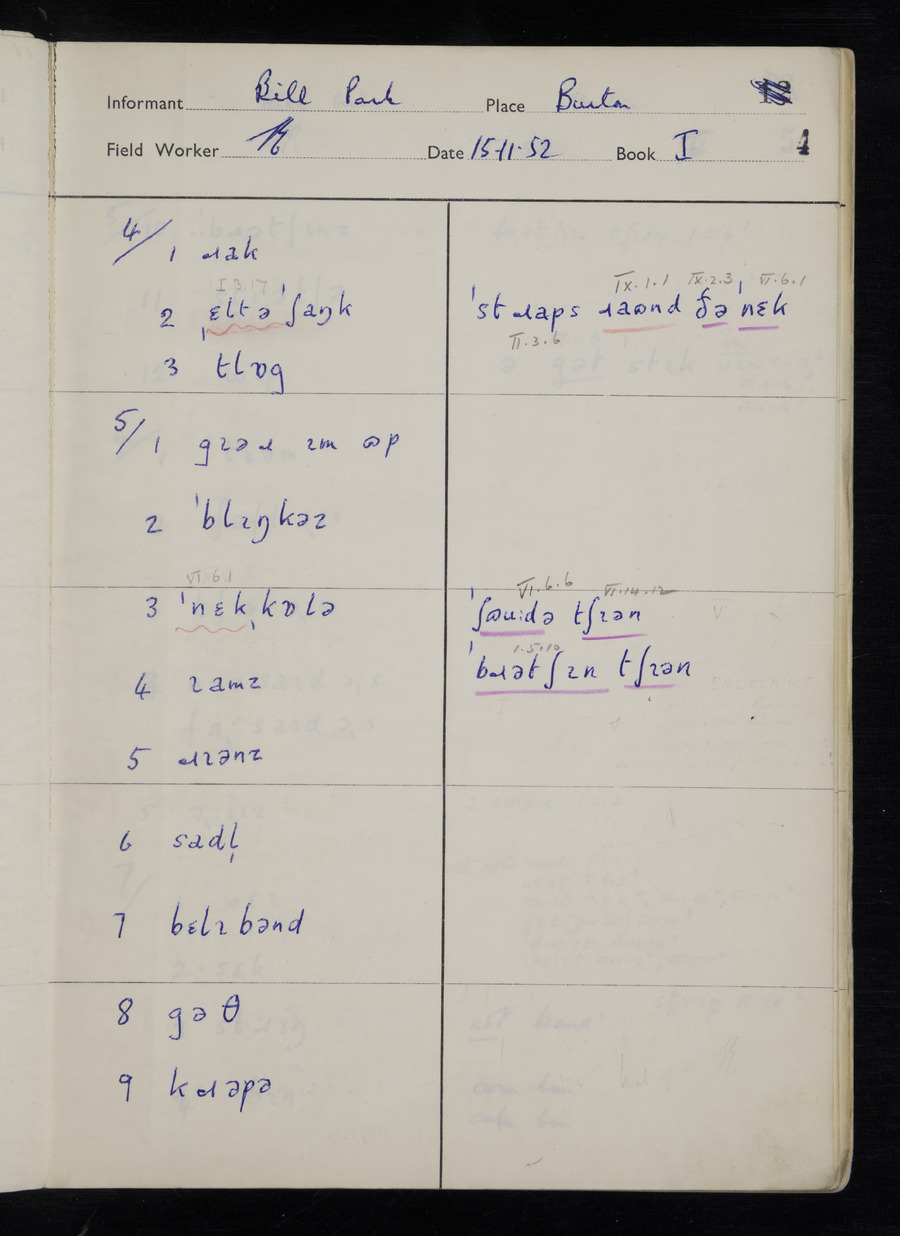 Informant Bill Park Place Burton
Field Worker Date 15·11·52 Book I 4
4/ 1 ɹak
I 3.17
2 ˌɛltəˈʃaŋk
IX.1.1 IX.2.3 VI.6.1
ˈstɹaps ɹaʊnd ðəˈnɛk
II.3.6
3 tlɒg
5/ 1 gɪəɹ ɪm ʊp
2 ˈblɪŋkəz
VI.6.1
3 ˈnɛkˌkɒlə
VI.6.6 VI.14.12
ˈʃʊuːdə tʃɪən
1.5.10
ˈbɹətʃɪn tʃɪən
4 ɪamz
5 ɹɪənz
6 sadl̩
7 bɛlɪbənd
8 gəθ
9 kɹəpə